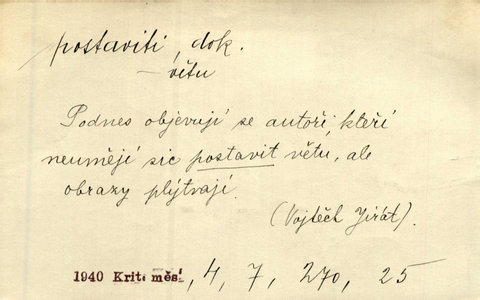 postaviti, dok.
– větu
Podnes objevují se autoři, kteří
neumějí sic postavit větu, ale
obrazy plýtvají.
(Vojtěch Jirát).
1940 Krit. měs., 4, 7, 270, 25